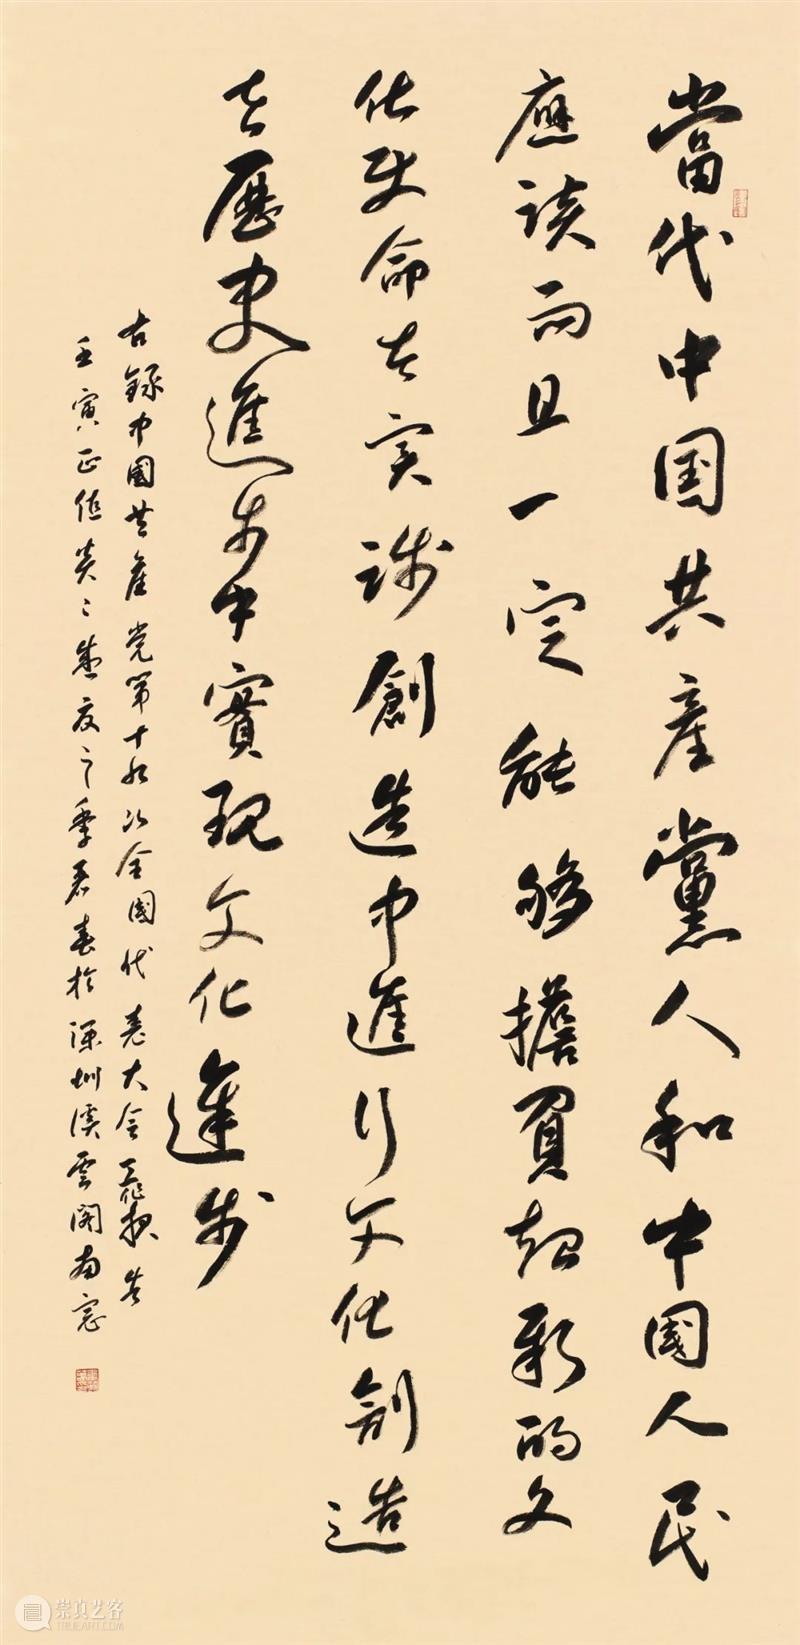 當代中国共産黨人和中國人民
應該而且一定能够擔負起新的文
化使命在实踐創造中進行文化創造
在歷史進步中實現文化進步
右録中國共產党第十九次全國代表大会報告
壬寅正值炎〻盛夏之季春於深圳溪雲閣南窓
崇真艺客